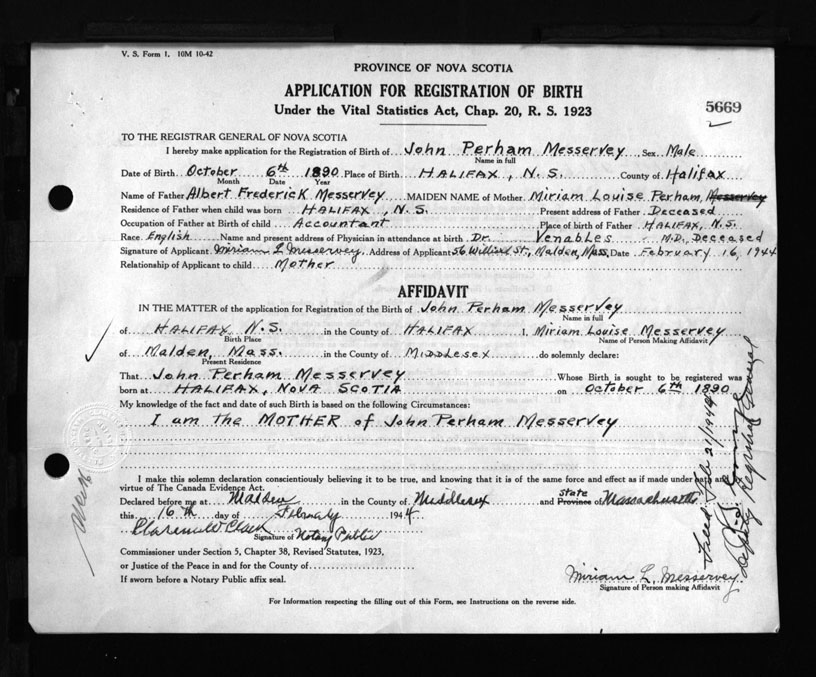 V. S. Form 1. 10M 10-42
PROVINCE OF NOVA SCOTIA
APPLICATION FOR REGISTRATION OF BIRTH
Under the Vital Statistics Act, Chap. 20, R. S. 1923
5669
TO THE REGISTRAR GENERAL OF NOVA SCOTIA
I hereby make application for the Registration of Birth of John Perham Messervey, Sex Male
Name in full
Date of Birth October 6th 1890 Place of Birth HALIFAX, N.S. County of Halifax
Month Date Year
Name of Father Albert Frederick Messervey MAIDEN NAME of Mother Miriam Louise Perham, Messervey
Residence of Father when child was born HALIFAX, N.S. Present address of Father Deceased
Occupation of Father at Birth of child Accountant Place of birth of Father HALIFAX, N.S.
Race English Name and present address of Physician in attendance at birth Dr. Venables M.D. Deceased
Signature of Applicant Miriam L Messervey Address of Applicant 56 Willard St., Malden, Mass. Date February 16, 1944
Relationship of Applicant to child Mother
AFFIDAVIT
IN THE MATTER of the application for Registration of the Birth of John Perham Messervey
Name in full
of HALIFAX N.S. in the County of HALIFAX I, Miriam Louise Messervey
Birth Place Name of Person Making Affidavit
of Malden, Mass. in the County of MIDDLESEX do solemnly declare:
Present Residence
That John Perham Messervey Whose Birth is sought to be registered was
born at HALIFAX, NOVA SCOTIA on October 6th 1890
My knowledge of the fact and date of such Birth is based on the following Circumstances:
I am the MOTHER of John Perham Messervey
I make this solemn declaration conscientiously believing it to be true, and knowing that it is of the same force and effect as if made under oath and
virtue of The Canada Evidence Act.
Declared before me at Malden in the County of Middlesex and State Province of Massachusetts
this 16th day of February 1944
Signature of Notary Public
Commissioner under Section 5, Chapter 38, Revised Statutes, 1923,
or Justice of the Peace in and for the County of
If sworn before a Notary Public affix seal.
Miriam L. Messervey
Signature of Person making Affidavit
For Information respecting the filling out of this Form, see Instructions on the reverse side.
Filed Feb 21/1944
Deputy Registrar General